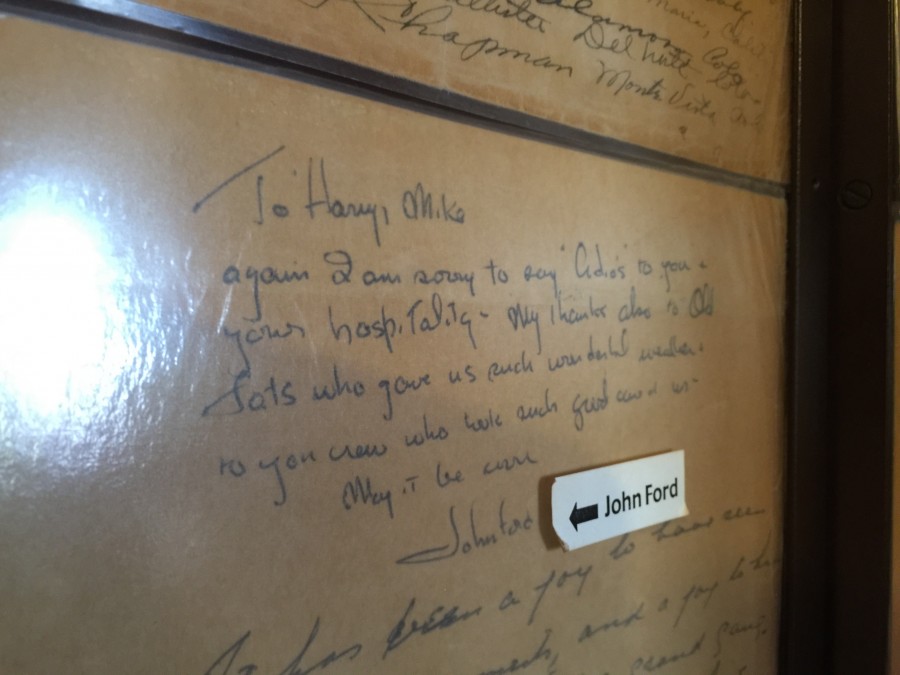 Chapman Monte Vista
To Harry, Mike
again I am sorry to say "Adios to you -
your hospitality - My thanks also to Old
Fats who gave us such wonderful weather -
to you crew who took such good care of us -
May it be soon
John Ford
← John Ford
It has been a joy to have seen
and a joy to
grand gang.